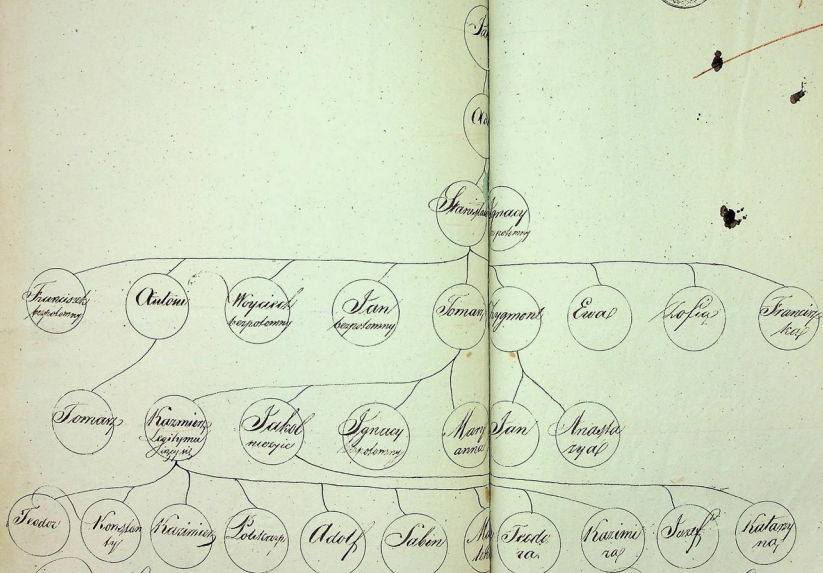 Stanisław
Ignacy
bezpotomny
Franciszek
bezpotomny
Antoni
Woyciech
bezpotomny
Jan
bezpotomny
Tomasz
Zygmont
Ewa
Zofia
Francisz
ka
Tomasz
Kazimierz
Legitymu
jący się
Jakob
nieżyje
Ignacy
bezpotomny
Mary
anna
Jan
Anasta
zya
Teodor
Konstan
ty
Kazimierz
Polikarp
Adolf
Sabin
Teodo
ra
Kazimi
ra
Józef
Katarzy
na